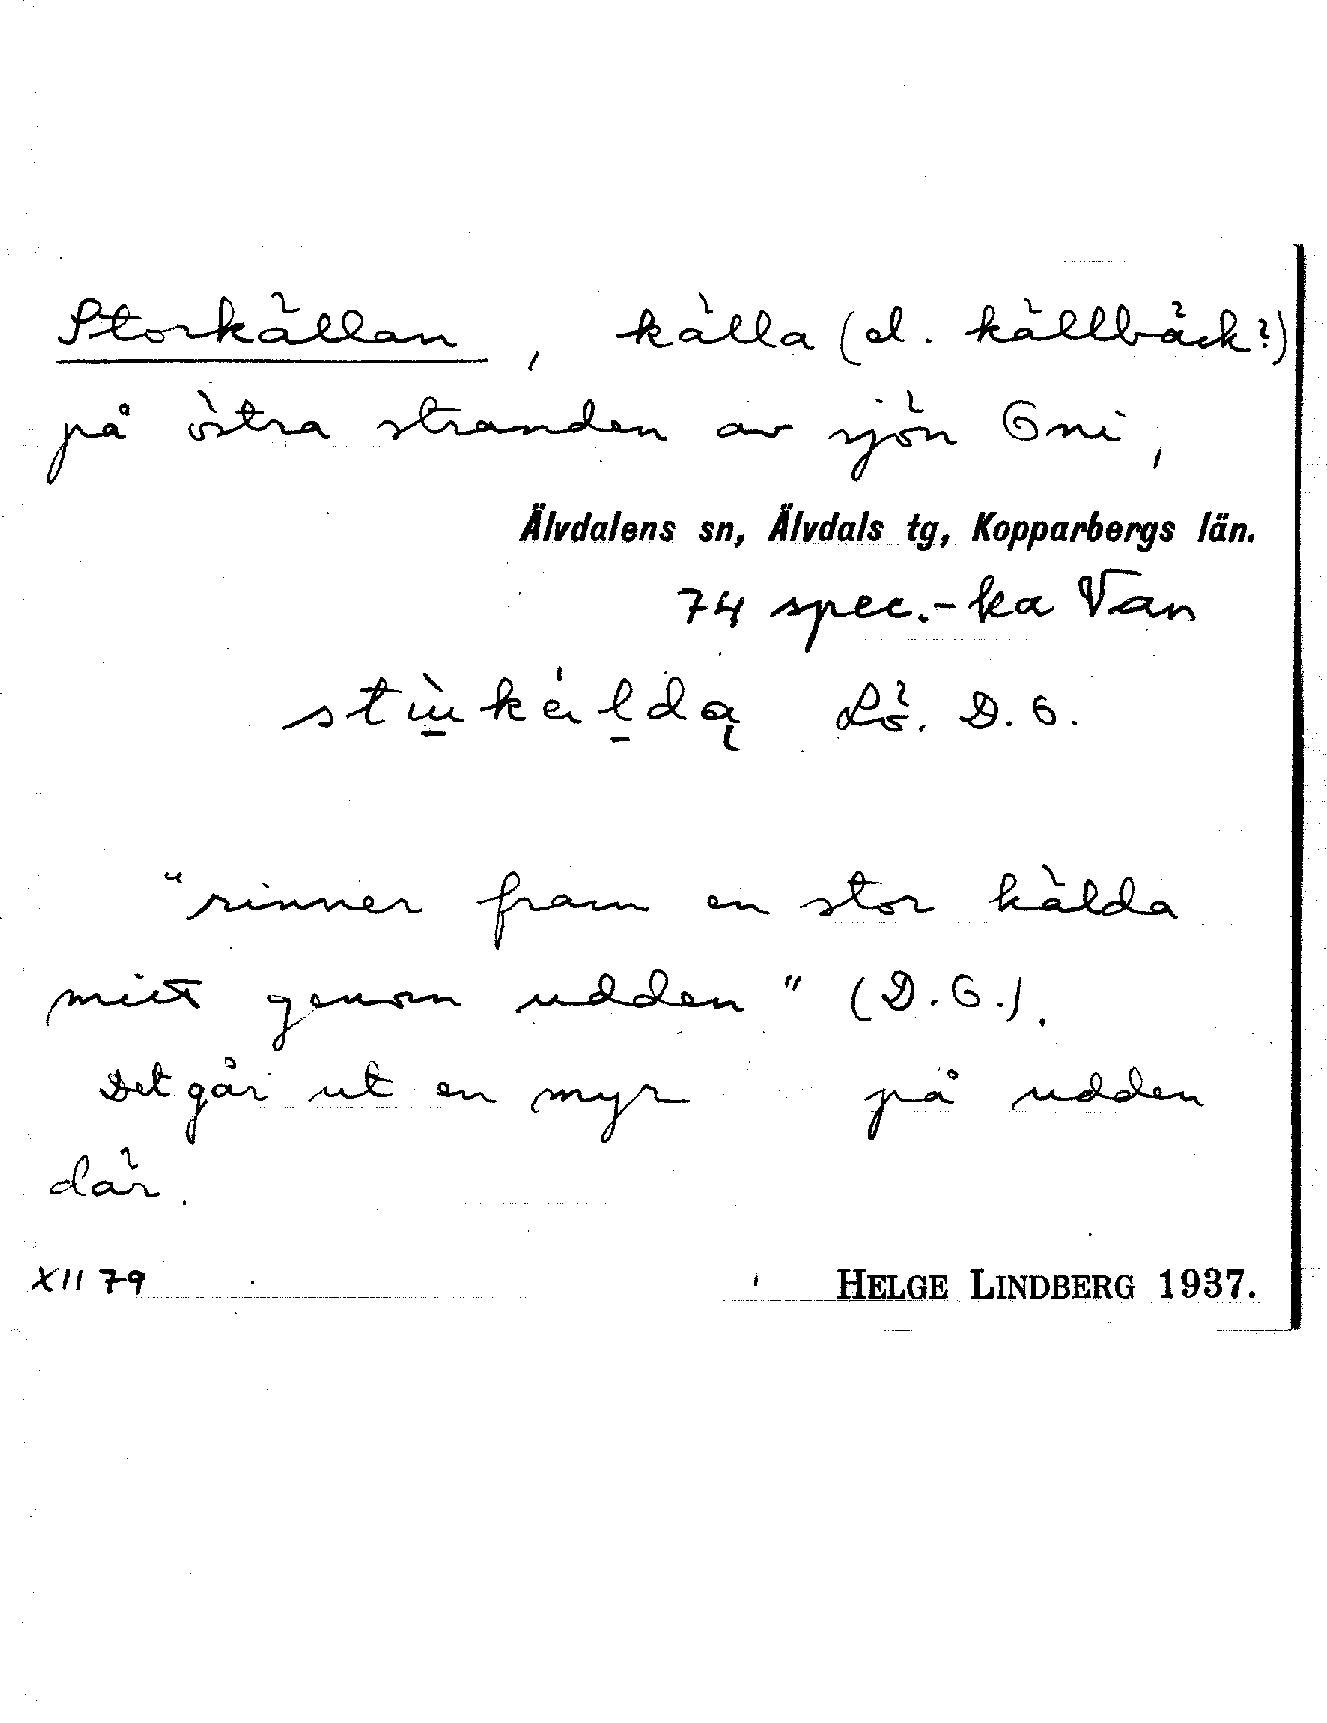 Storkällan, källa (el. källbäck?)
på östra stranden av sjön Oni,
Älvdalens sn, Älvdals tg, Kopparbergs län.
74 spec.-ka Van
Lö. D. O.
"rinner fram en stor kälda
mitt genom udden" (D. O.).
Det går ut en myr på udden
där.
XII 79 HELGE LINDBERG 1937.